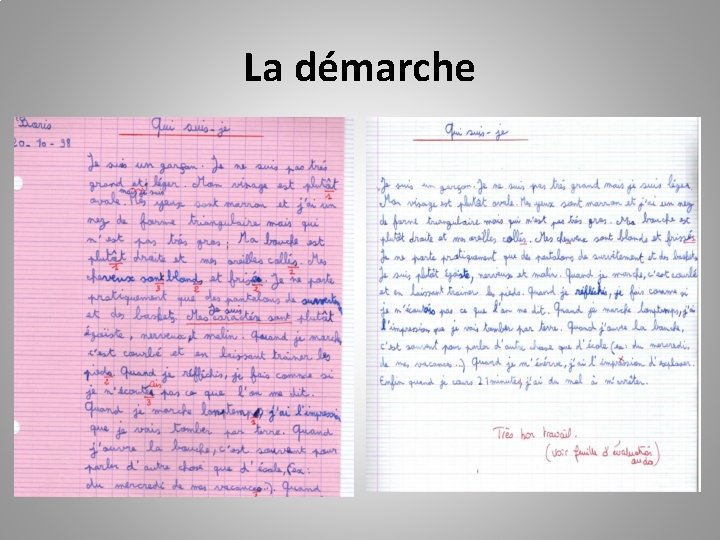 La démarche
Doris
20-10-98
Qui suis-je
Je suis un garçon. Je ne suis pas très
grand et léger. Mon visage est plutôt
mais je suis
ovale. Mes yeux sont marron et j'ai un
nez de forme triangulaire mais qui
n'est pas très gros ; Ma bouche est
plutôt droite et mes oreilles collés. Mes
cheveux sont blonds et Je ne porte
pratiquement que des pantalons de
Je suis
et des basket. Mes caractère sont plutôt
égoïste, nerveux, et malin. Quand je marche
c'est courbé et en laissant traîner les
pieds. Quand je réfléchis, je fais comme si
je n'écoutais pas ce que l'on me dit.
Quand je marche longtemps, j'ai l'impression
que je vais tomber par terre. Quand
j'ouvre la bouche, c'est souvent pour
parler d'autre chose que d'école, (ex:
du mercredi de mes vacances..). Quand
Qui suis-je
Je suis un garçon. Je ne suis pas très grand mais je suis léger.
Mon visage est plutôt ovale. Mes yeux sont marron et j'ai un nez
de forme triangulaire mais qui n'est pas très gros. Ma bouche est
plutôt droite et mes oreilles collés. Mes cheveux sont blonds et frisés
Je ne porte pratiquement que des pantalons de survêtement et des baskets
Je suis plutôt égoïste, nerveux et malin. Quand je marche, c'est courbé
et en laissant traîner les pieds. Quand je réfléchis, je fais comme si
je n'écoutais pas ce que l'on me dit. Quand je marche longtemps, j'ai
l'impression que je vais tomber par terre. Quand j'ouvre la bouche,
c'est souvent pour parler d'autre chose que d'école (ex: du mercredi,
de mes vacances..) Quand je m'énerve, j'ai l'impression d'exploser.
Enfin quand je cours 21 minutes, j'ai du mal à m'arrêter.
Très bon travail.
(voir feuille d'évaluation
au dos)